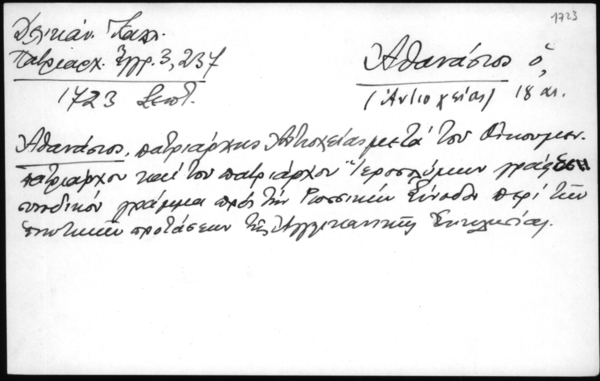 1723
Δελικάν. Καλ.
Πατριαρχ. Ἔγγρ. 3, 237
1723 Σεπτ.
Ἀθανάσιος ὁ,
(Ἀντιοχείας) 18 αι.
Ἀθανάσιος, πατριάρχης Ἀντιοχείας μετά τοῦ Οἰκουμεν.
πατριάρχου καί τοῦ πατριάρχου Ἱεροσολύμων γράφει
συνοδικόν γράμμα πρός τήν Ρωσσικήν Σύνοδον περί τῶν
ἑνωτικῶν προτάσεων τῆς Ἀγγλικανικῆς Ἐκκλησίας.